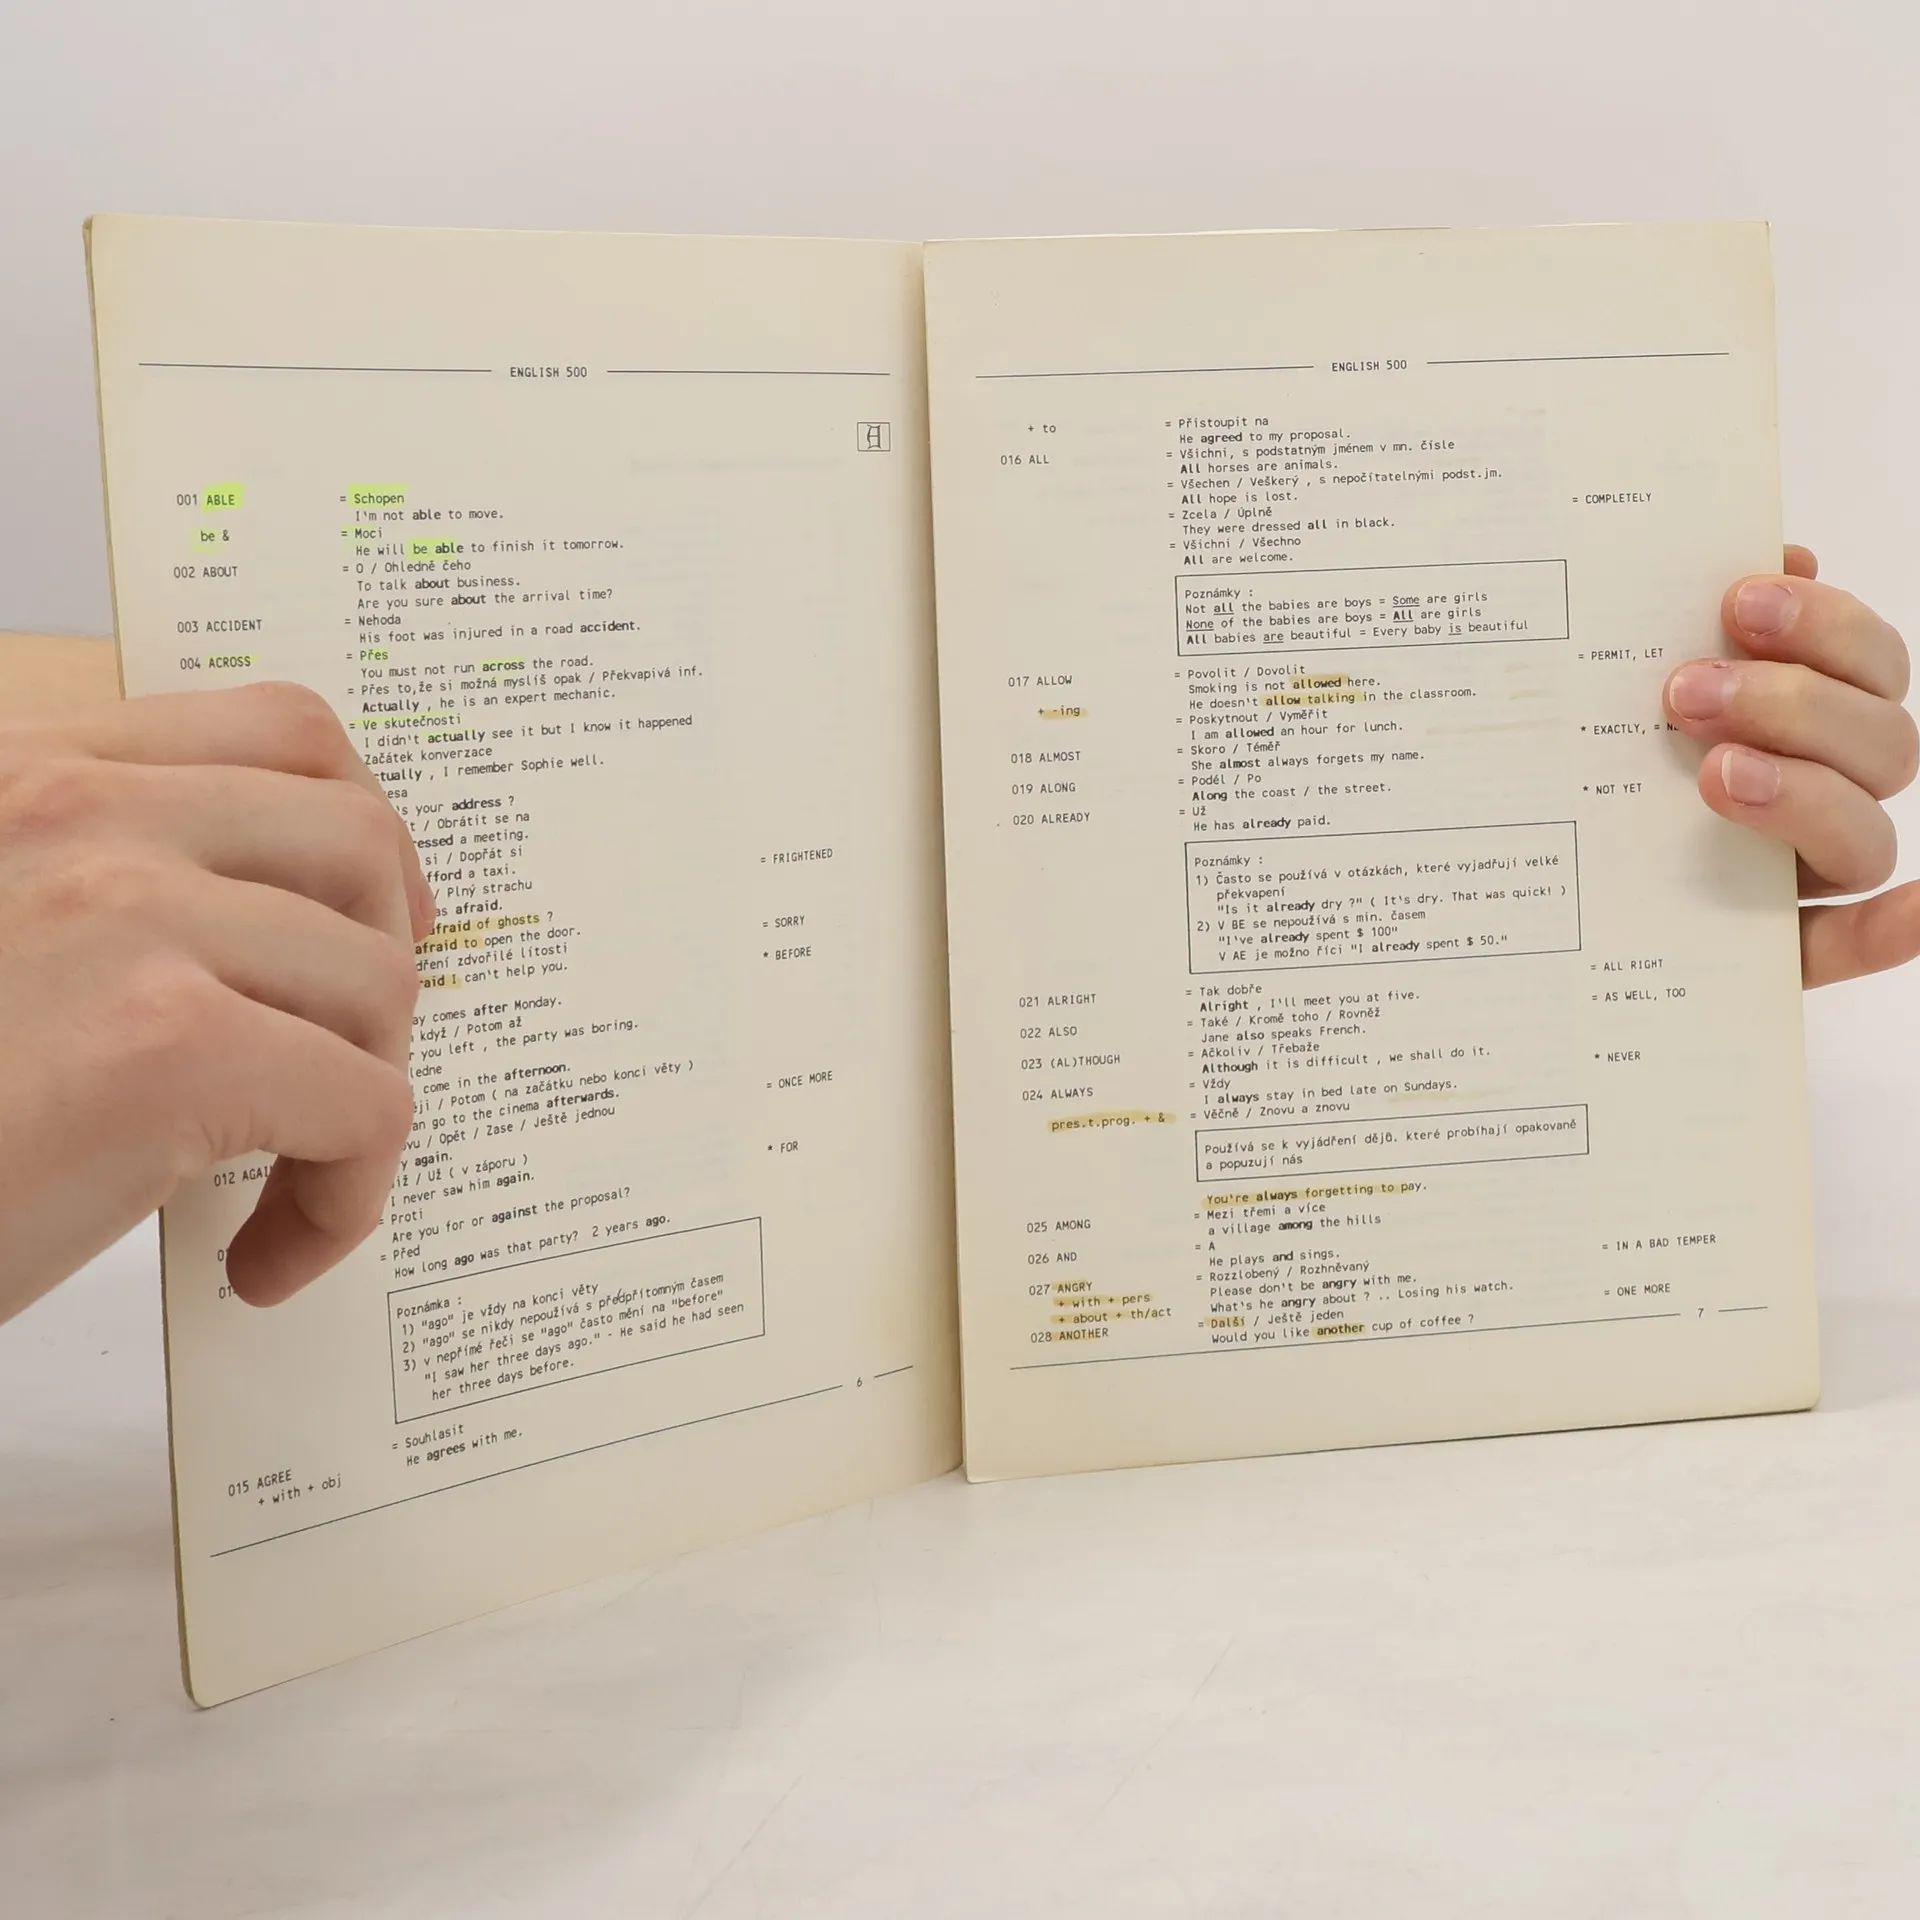 ENGLISH 500
A
001 ABLE = Schopen
I'm not able to move.
be & = Moci
He will be able to finish it tomorrow.
002 ABOUT = O / Ohledně čeho
To talk about business.
Are you sure about the arrival time?
003 ACCIDENT = Nehoda
His foot was injured in a road accident.
004 ACROSS = Přes
You must not run across the road.
= Přes to,že si možná myslíš opak / Překvapivá inf.
Actually , he is an expert mechanic.
= Ve skutečnosti
I didn't actually see it but I know it happened
Začátek konverzace
ctually , I remember Sophie well.
esa
's your address ?
t / Obrátit se na
essed a meeting.
si / Dopřát si
fford a taxi.
/ Plný strachu = FRIGHTENED
as afraid.
afraid of ghosts ?
afraid to open the door.
dření zdvořilé lítosti = SORRY
raid I can't help you.
* BEFORE
ay comes after Monday.
když / Potom až
r you left , the party was boring.
ledne
come in the afternoon.
ěji / Potom ( na začátku nebo konci věty )
an go to the cinema afterwards.
012 AGAI vu / Opět / Zase / Ještě jednou = ONCE MORE
y again.
iž / Už ( v záporu )
I never saw him again.
= Proti * FOR
Are you for or against the proposal?
= Před
How long ago was that party? 2 years ago.
Poznámka :
1) "ago" je vždy na konci věty
2) "ago" se nikdy nepoužívá s předpřítomným časem
3) v nepřímé řeči se "ago" často mění na "before"
"I saw her three days ago." - He said he had seen
her three days before.
015 AGREE = Souhlasit
+ with + obj He agrees with me.
6
ENGLISH 500
+ to = Přistoupit na
He agreed to my proposal.
016 ALL = Všichni, s podstatným jménem v mn. čísle
All horses are animals.
= Všechen / Veškerý , s nepočítatelnými podst.jm.
All hope is lost.
= Zcela / Úplně = COMPLETELY
They were dressed all in black.
= Všichni / Všechno
All are welcome.
Poznámky :
Not all the babies are boys = Some are girls
None of the babies are boys = All are girls
All babies are beautiful = Every baby is beautiful
017 ALLOW = Povolit / Dovolit = PERMIT, LET
Smoking is not allowed here.
+ -ing He doesn't allow talking in the classroom.
= Poskytnout / Vyměřit
I am allowed an hour for lunch.
018 ALMOST = Skoro / Téměř * EXACTLY, =
She almost always forgets my name.
019 ALONG = Podél / Po
Along the coast / the street.
020 ALREADY = Už * NOT YET
He has already paid.
Poznámky :
1) Často se používá v otázkách, které vyjadřují velké
překvapení
"Is it already dry ?" ( It's dry. That was quick! )
2) V BE se nepoužívá s min. časem
"I've already spent $ 100"
V AE je možno říci "I already spent $ 50."
021 ALRIGHT = Tak dobře = ALL RIGHT
Alright , I'll meet you at five.
022 ALSO = Také / Kromě toho / Rovněž = AS WELL, TOO
Jane also speaks French.
023 (AL)THOUGH = Ačkoliv / Třebaže
Although it is difficult , we shall do it.
024 ALWAYS = Vždy * NEVER
I always stay in bed late on Sundays.
pres.t.prog. + & = Věčně / Znovu a znovu
Používá se k vyjádření dějů, které probíhají opakovaně
a popuzují nás
You're always forgetting to pay.
025 AMONG = Mezi třemi a více
a village among the hills
026 AND = A
He plays and sings.
027 ANGRY = Rozzlobený / Rozhněvaný = IN A BAD TEMPER
+ with + pers Please don't be angry with me.
+ about + th/act What's he angry about ? .. Losing his watch.
028 ANOTHER = Další / Ještě jeden = ONE MORE
Would you like another cup of coffee ?
7